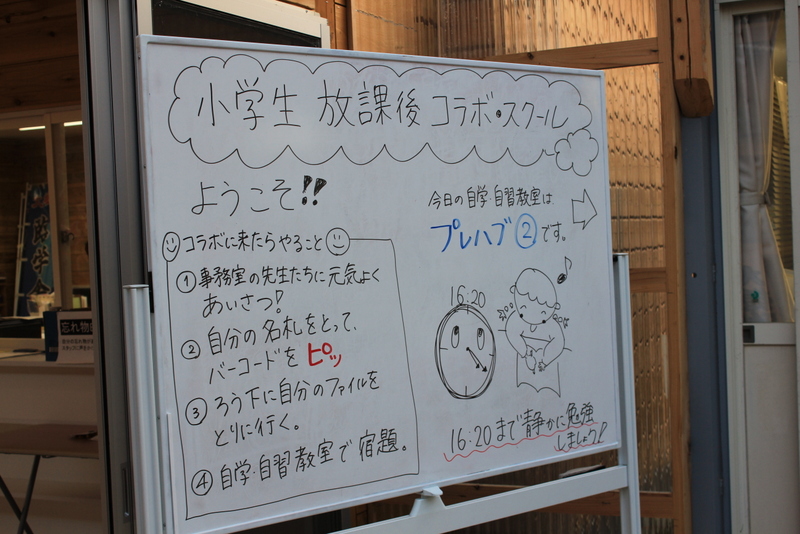 小学生 放課後 コラボ・スクール
ようこそ!!
コラボに来たらやること
① 事務室の先生たちに元気よく
あいさつ!
② 自分の名札をとって、
バーコードを ピッ
③ ろう下に自分のファイルを
とりに行く。
④ 自学・自習教室で宿題。
今日の自学・自習教室は
プレハブ②です。
16:20
16:20まで静かに勉強
しましょう!
忘れ物